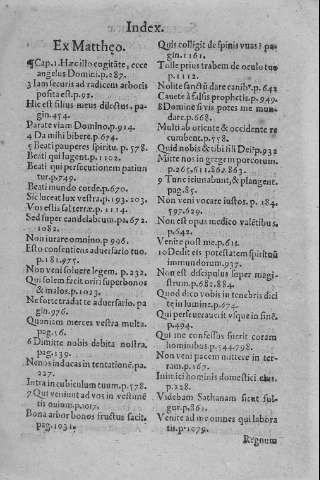 Index.
Ex Mattheo.
¶Cap.1.Hæc illo cogitāte, ecce
angelus Domini.p.287.
3 Iam securis ad radicem arboris
posita est.p.92.
Hic est filius meus dilectus. pa-
gin.454.
Parate viam Domino.p.914.
4 Da mihi bibere.p.674.
5 Beati pauperes spiritu. p.578.
Beati qui lugent.p.1102.
Beati qui persecutionem patiun
tur.p.749.
Beati mundo corde.p.670.
Sic luceat lux vestra.p.193.203.
Vos estis sal terræ.p.1114.
Sed super candelabrum.pa.672.
1082.
Non iurare omnino.p 996.
Esto consentiens aduersario tuo.
p.181.975.
Non veni soluere legem. p.232.
Qui solem facit oriri super bonos
& malos.p.1023.
Ne forte tradat te aduersario. pa
gin.976.
Quoniam merces vestra multa.
pag.16.
6 Dimitte nobis debita nostra.
pag.139.
Ne nos inducas in tentationē.pa.
227.
Intra in cubiculum tuum.p.578.
7 Qui veniunt ad vos in vestimē
tis ouium.p.1017.
Bona arbor bonos fructus facit.
pag.1031.
Quis colligit de spinis vuas? pa-
gin.1161.
Tolle prius trabem de oculo tuo
p.1112.
Nolite sanctū dare canib⁹.p.642
Cauete à falsis prophetis.p.949.
8 Domine si vis potes me mun-
dare.p.668.
Multi ab oriente & occidente re
cumbent.p.578.
Quid nobis & tibi fili Dei?p.932
Mitte nos in gregem porcorum.
p.265.611.862.863.
9 Tunc ieiunabunt, & plangent.
pag.85.
Non veni vocare iustos. p. 184.
597.629.
Non est opus medico valētibus.
p.642.
Venite post me.p.611.
10 Dedit eis potestatem spirituū
immundorum.937.
Non est discipulus super magi-
strum.p.682.884.
Quod dico vobis in tenebris dici
te in lumine.p.674.
Qui perseuerauerit vsque in finē.
p.494.
Qui me confessus fuerit coram
hominibus.p.544.798.
Non veni pacem mittere in ter-
ram.p.167.
Inimici hominis domestici eius.
p.228.
Videbam Sathanam sicut ful-
gur.p.861.
Venite ad me omnes qui labora
tis.p.1079.
Regnum